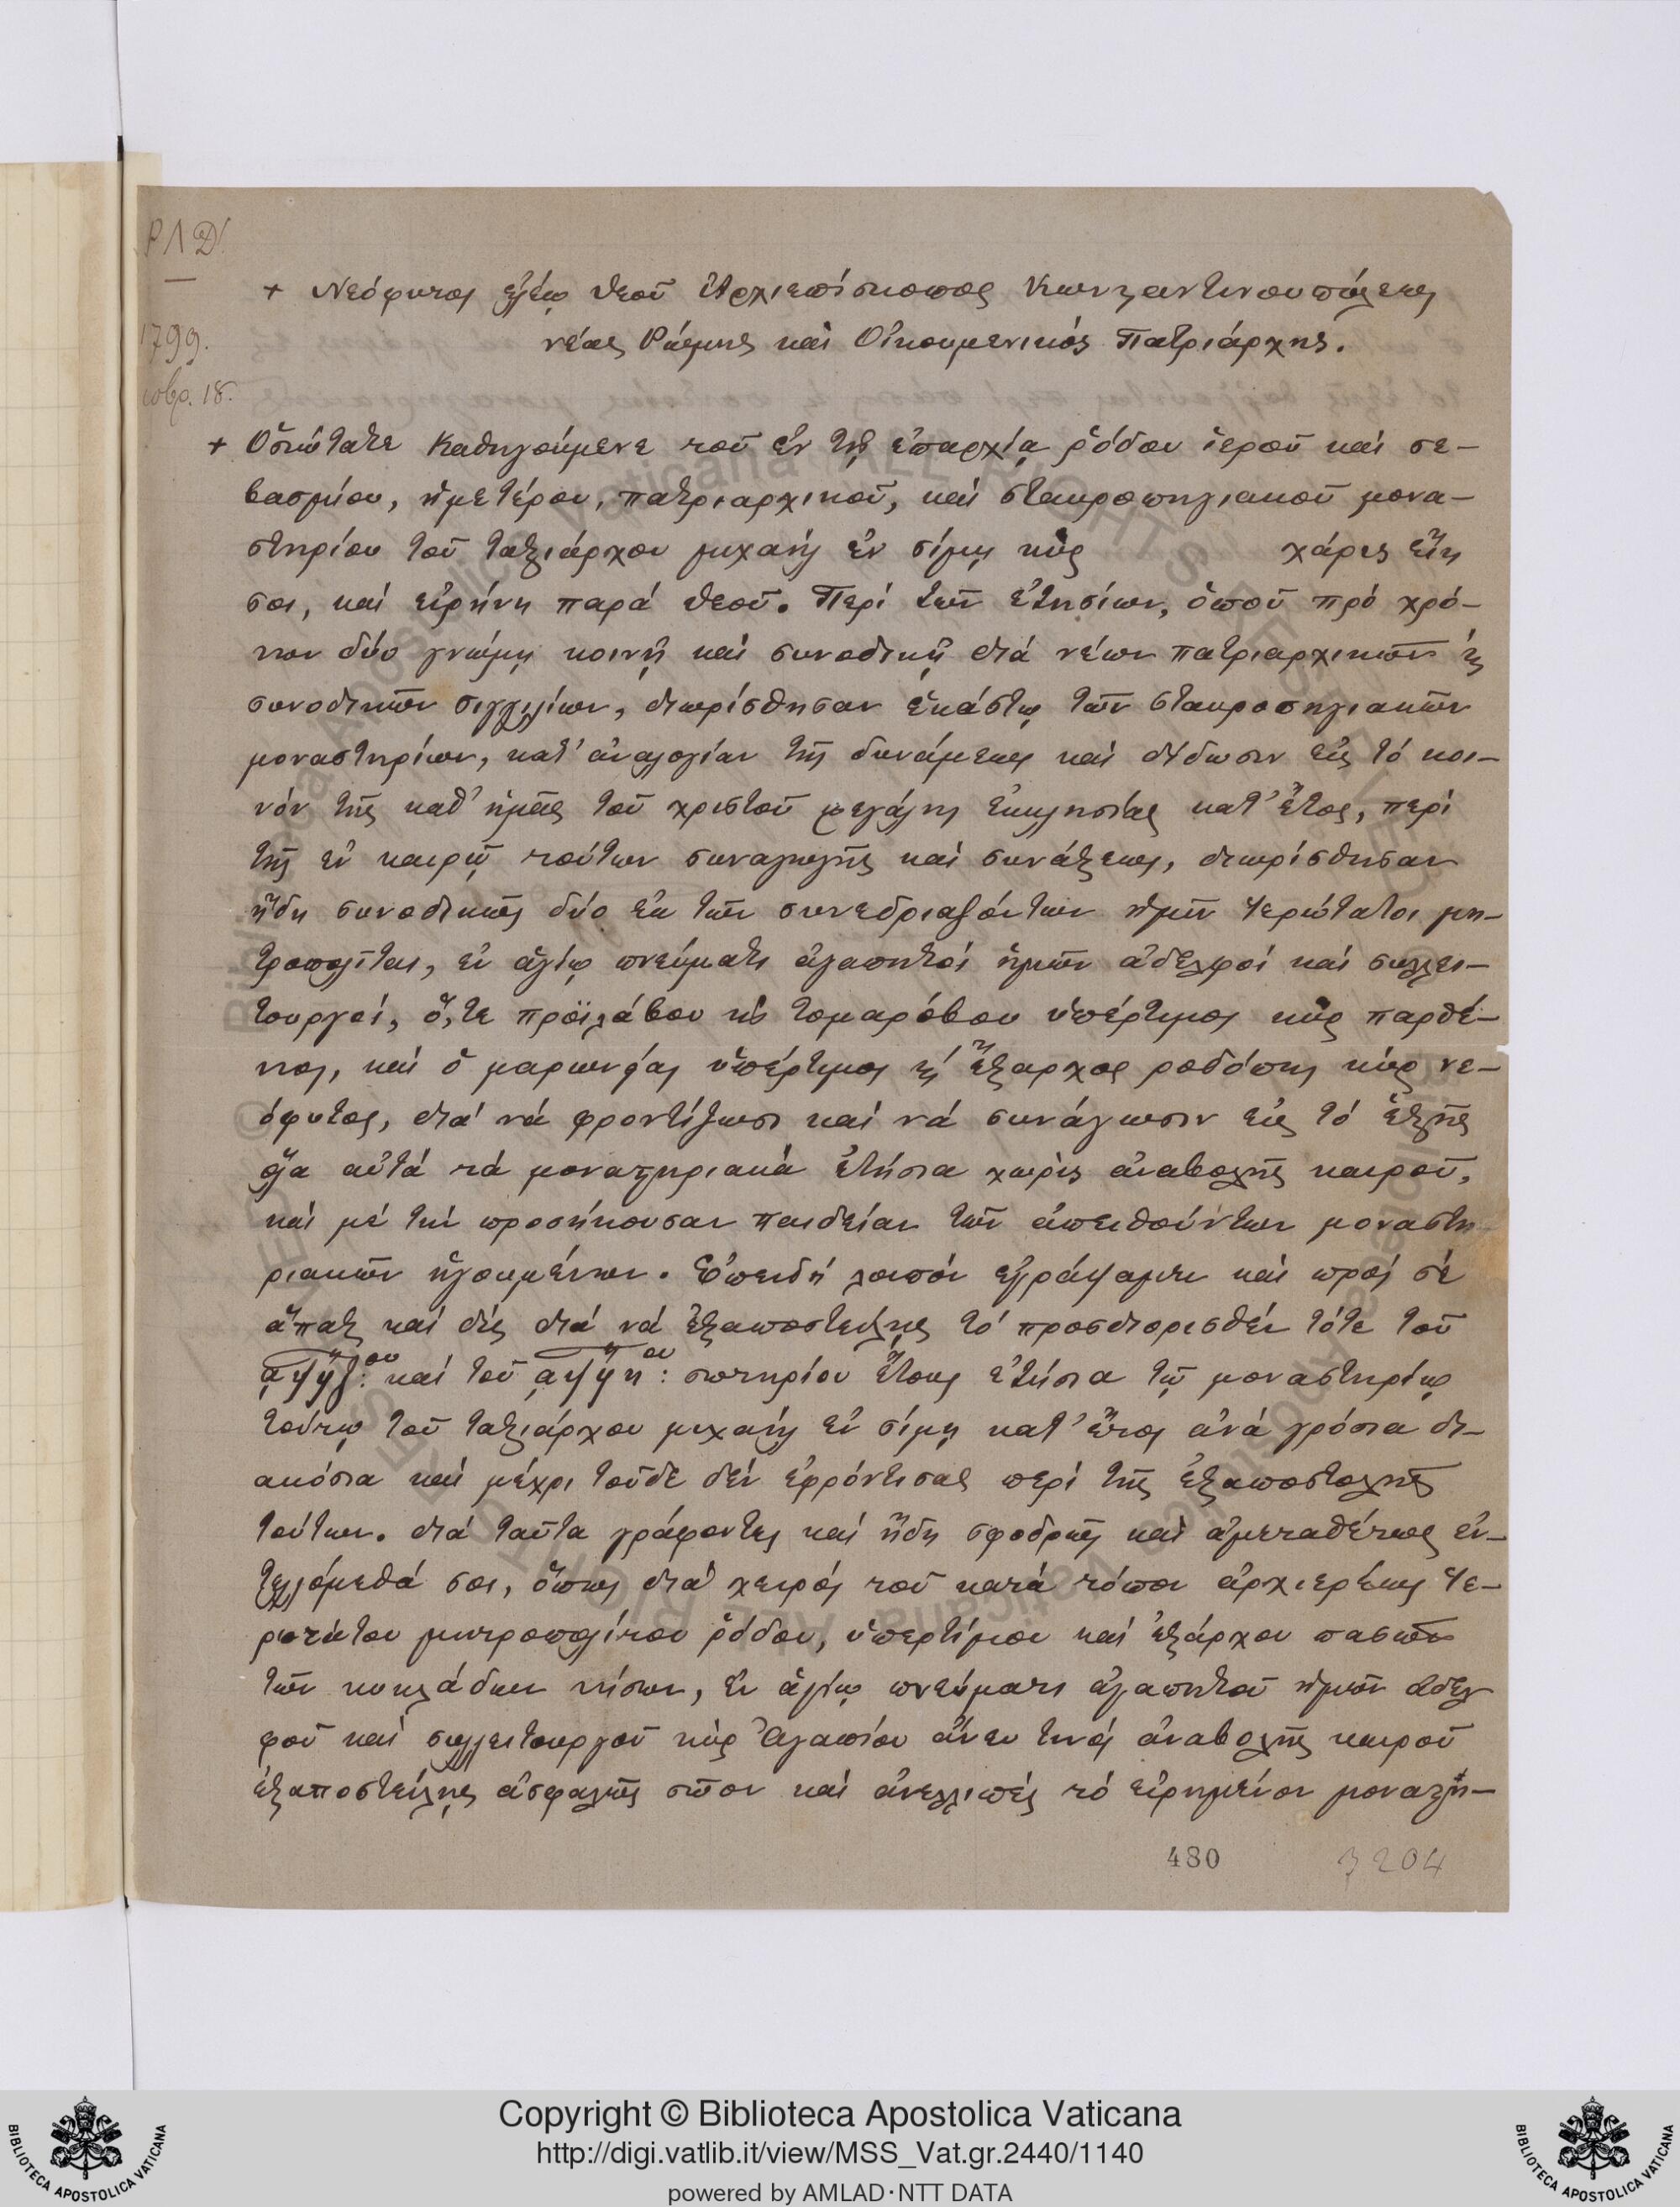 ΡΛΔ'.
1799.
νοβρ. 18.
+ Νεόφυτος ἐλέῳ θεοῦ Ἀρχιεπίσκοπος Κωνσταντινουπόλεως
νέας Ρώμης καὶ Οἰκουμενικός Πατριάρχης.
+ Ὁσιώτατε Καθηγούμενε τοῦ ἐν τῇ ἐπαρχίᾳ ῥόδου ἱεροῦ καί σε-
βασμίου, ἡμετέρου, πατριαρχικοῦ, καί σταυροπηγιακοῦ μονα-
στηρίου τοῦ ταξιάρχου μιχαήλ ἐν σίμῃ κὺρ χάρις εἴη
σοι, καί εἰρήνη παρά θεοῦ. Περί τῶν ἐτησίων, ὁποῦ πρό χρό-
νων δύο γνώμῃ κοινῇ καί συνοδικῇ διά νέων πατριαρχικῶν ϗ
συνοδικῶν σιγγιλίων, διωρίσθησαν ἑκάστῳ τῶν σταυροπηγιακῶν
μοναστηρίων, κατ' ἀναλογίαν τῆς δυνάμεως καί δίδωσιν εἰς τό κοι-
νόν τῆς καθ' ἡμᾶς τοῦ χριστοῦ μεγάλης ἐκκλησίας κατ' ἔτος, περί
τῆς ἐν καιρῷ τούτων συναγωγῆς καί συνάξεως, διωρίσθησαν
ἤδη συνοδικῶς δύο ἐκ τῶν συνεδριαζόντων ἡμῖν ἱερώτατοι μη-
τροπολῖται, ἐν ἁγίῳ πνεύματι ἀγαπητοί ἡμῶν ἀδελφοί καί συλλει-
τουργοί, ὅ,τε προϊλάβου ϗ τομαρόβου ὑπέρτιμος κὺρ παρθέ-
νιος, καί ὁ μαρωνείας ὑπέρτιμος ϗ ἔξαρχος ροδόπης κὺρ νε-
όφυτος, διά νά φροντίζωσι καί νά συνάγωσιν εἰς τό ἑξῆς
ὅλα αὐτά τά μοναστηριακά ἐτήσια χωρίς ἀναβολῆς καιροῦ,
καί μέ τήν προσήκουσαν παιδείαν τῶν ἀπειθούντων μοναστη
ριακῶν ἡγουμένων. Ἐπειδή λοιπόν ἐγράψαμεν καί πρός σέ
ἅπαξ καί δίς διά νά ἐξαποστείλῃς τό προσδιορισθέν τότε τοῦ
αψϟζ:ου καί τοῦ αψϟη:ου σωτηρίου ἔτους ἐτήσια τῷ μοναστηρίῳ
τούτῳ τοῦ ταξιάρχου μιχαήλ ἐν σίμῃ κατ' ἔτος ἀνά γρόσια δι-
ακόσια καί μέχρι τοῦδε δέν ἐφρόντισας περί τῆς ἐξαποστολῆς
τούτων. διά ταῦτα γράφοντες καί ἤδη σφοδρῶς καί ἀμεταθέτως ἐν-
τελλόμεθά σοι, ὅπως διά χειρός τοῦ κατά τόπον ἀρχιερέως ἱε-
ρωτάτου μητροπολίτου ῥόδου, ὑπερτίμου καί ἐξάρχου πασῶν
τῶν κυκλάδων νήσων, ἐν ἁγίῳ πνεύματι ἀγαπητοῦ ἡμῶν ἀδελ
φοῦ καί συλλειτουργοῦ κὺρ Ἀγαπίου ἄνευ τινός ἀναβολῆς καιροῦ
ἐξαποστείλῃς ἀσφαλῶς σῶον καί ἀνελλιπές τό εἰρημένον μοναστη-
480
3204
Copyright © Biblioteca Apostolica Vaticana
http://digi.vatlib.it/view/MSS_Vat.gr.2440/1140
powered by AMLAD·NTT DATA